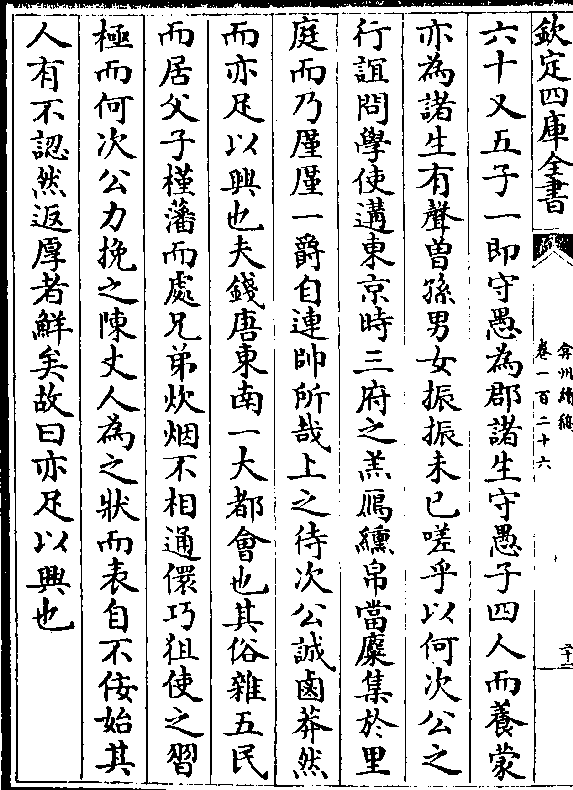 欽定四庫全書
弇州續稿
卷一百二十六
六十又五子一即守愚為郡諸生守愚子四人而養蒙
亦為諸生有聲曽孫男女振振未已嗟乎以何次公之
行誼問學使遘東京時三府之羔鴈纁帛當麇集於里
庭而乃厪厪一爵自連帥所哉上之待次公誠鹵莽然
而亦足以興也夫錢唐東南一大都會也其俗雜五民
而居父子槿藩而處兄弟炊烟不相通儇巧狙使之習
極而何次公力挽之陳丈人為之狀而表自不佞始其
人有不認然返厚者鮮矣故曰亦足以興也